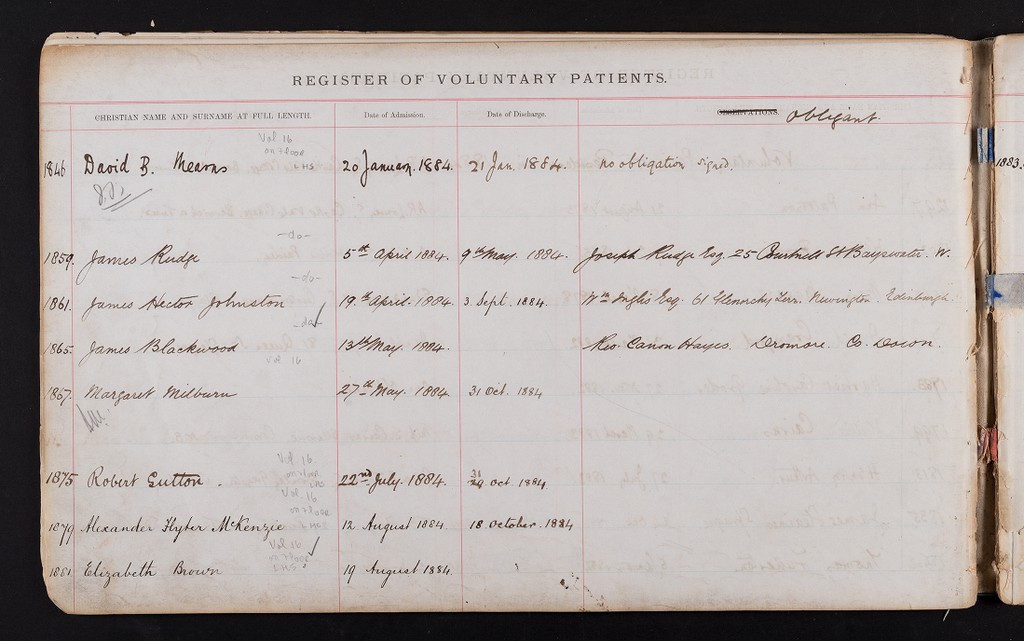 REGISTER OF VOLUNTARY PATIENTS.
CHRISTIAN NAME AND SURNAME AT FULL LENGTH. Date of Admission. Date of Discharge. OBSERVATIONS. Obligant.
Vol 16
on floor
1846 David B. Mearns 20 January. 1884. 21 Jan. 1884. no obligation signed. 1883.
-do-
1859. James Rudge 5th April 1884. 9th May. 1884. Joseph Rudge Esq. 25 St Bayswater. W.
-do-
1861. James Hector Johnston 19th April. 1884. 3. Sept. 1884. Wm Inglis Esq. 61 Glenorchy Terr. Newington. Edinburgh.
-do-
1865. James Blackwood 13th May. 1884. Rev. Canon Hayes. Dromore. Co. Down.
Vol 16
1867. Margaret Milburn 27th May. 1884. 31 Oct. 1884
Vol. 16
on floor
1875 Robert Gutton. 22nd July. 1884. 31 Oct. 1884.
Vol. 16
on floor
1879 Alexander McKenzie 12 August 1884. 18 October. 1884
Vol 16
on floor
1881 Elizabeth Brown 19 August 1884.